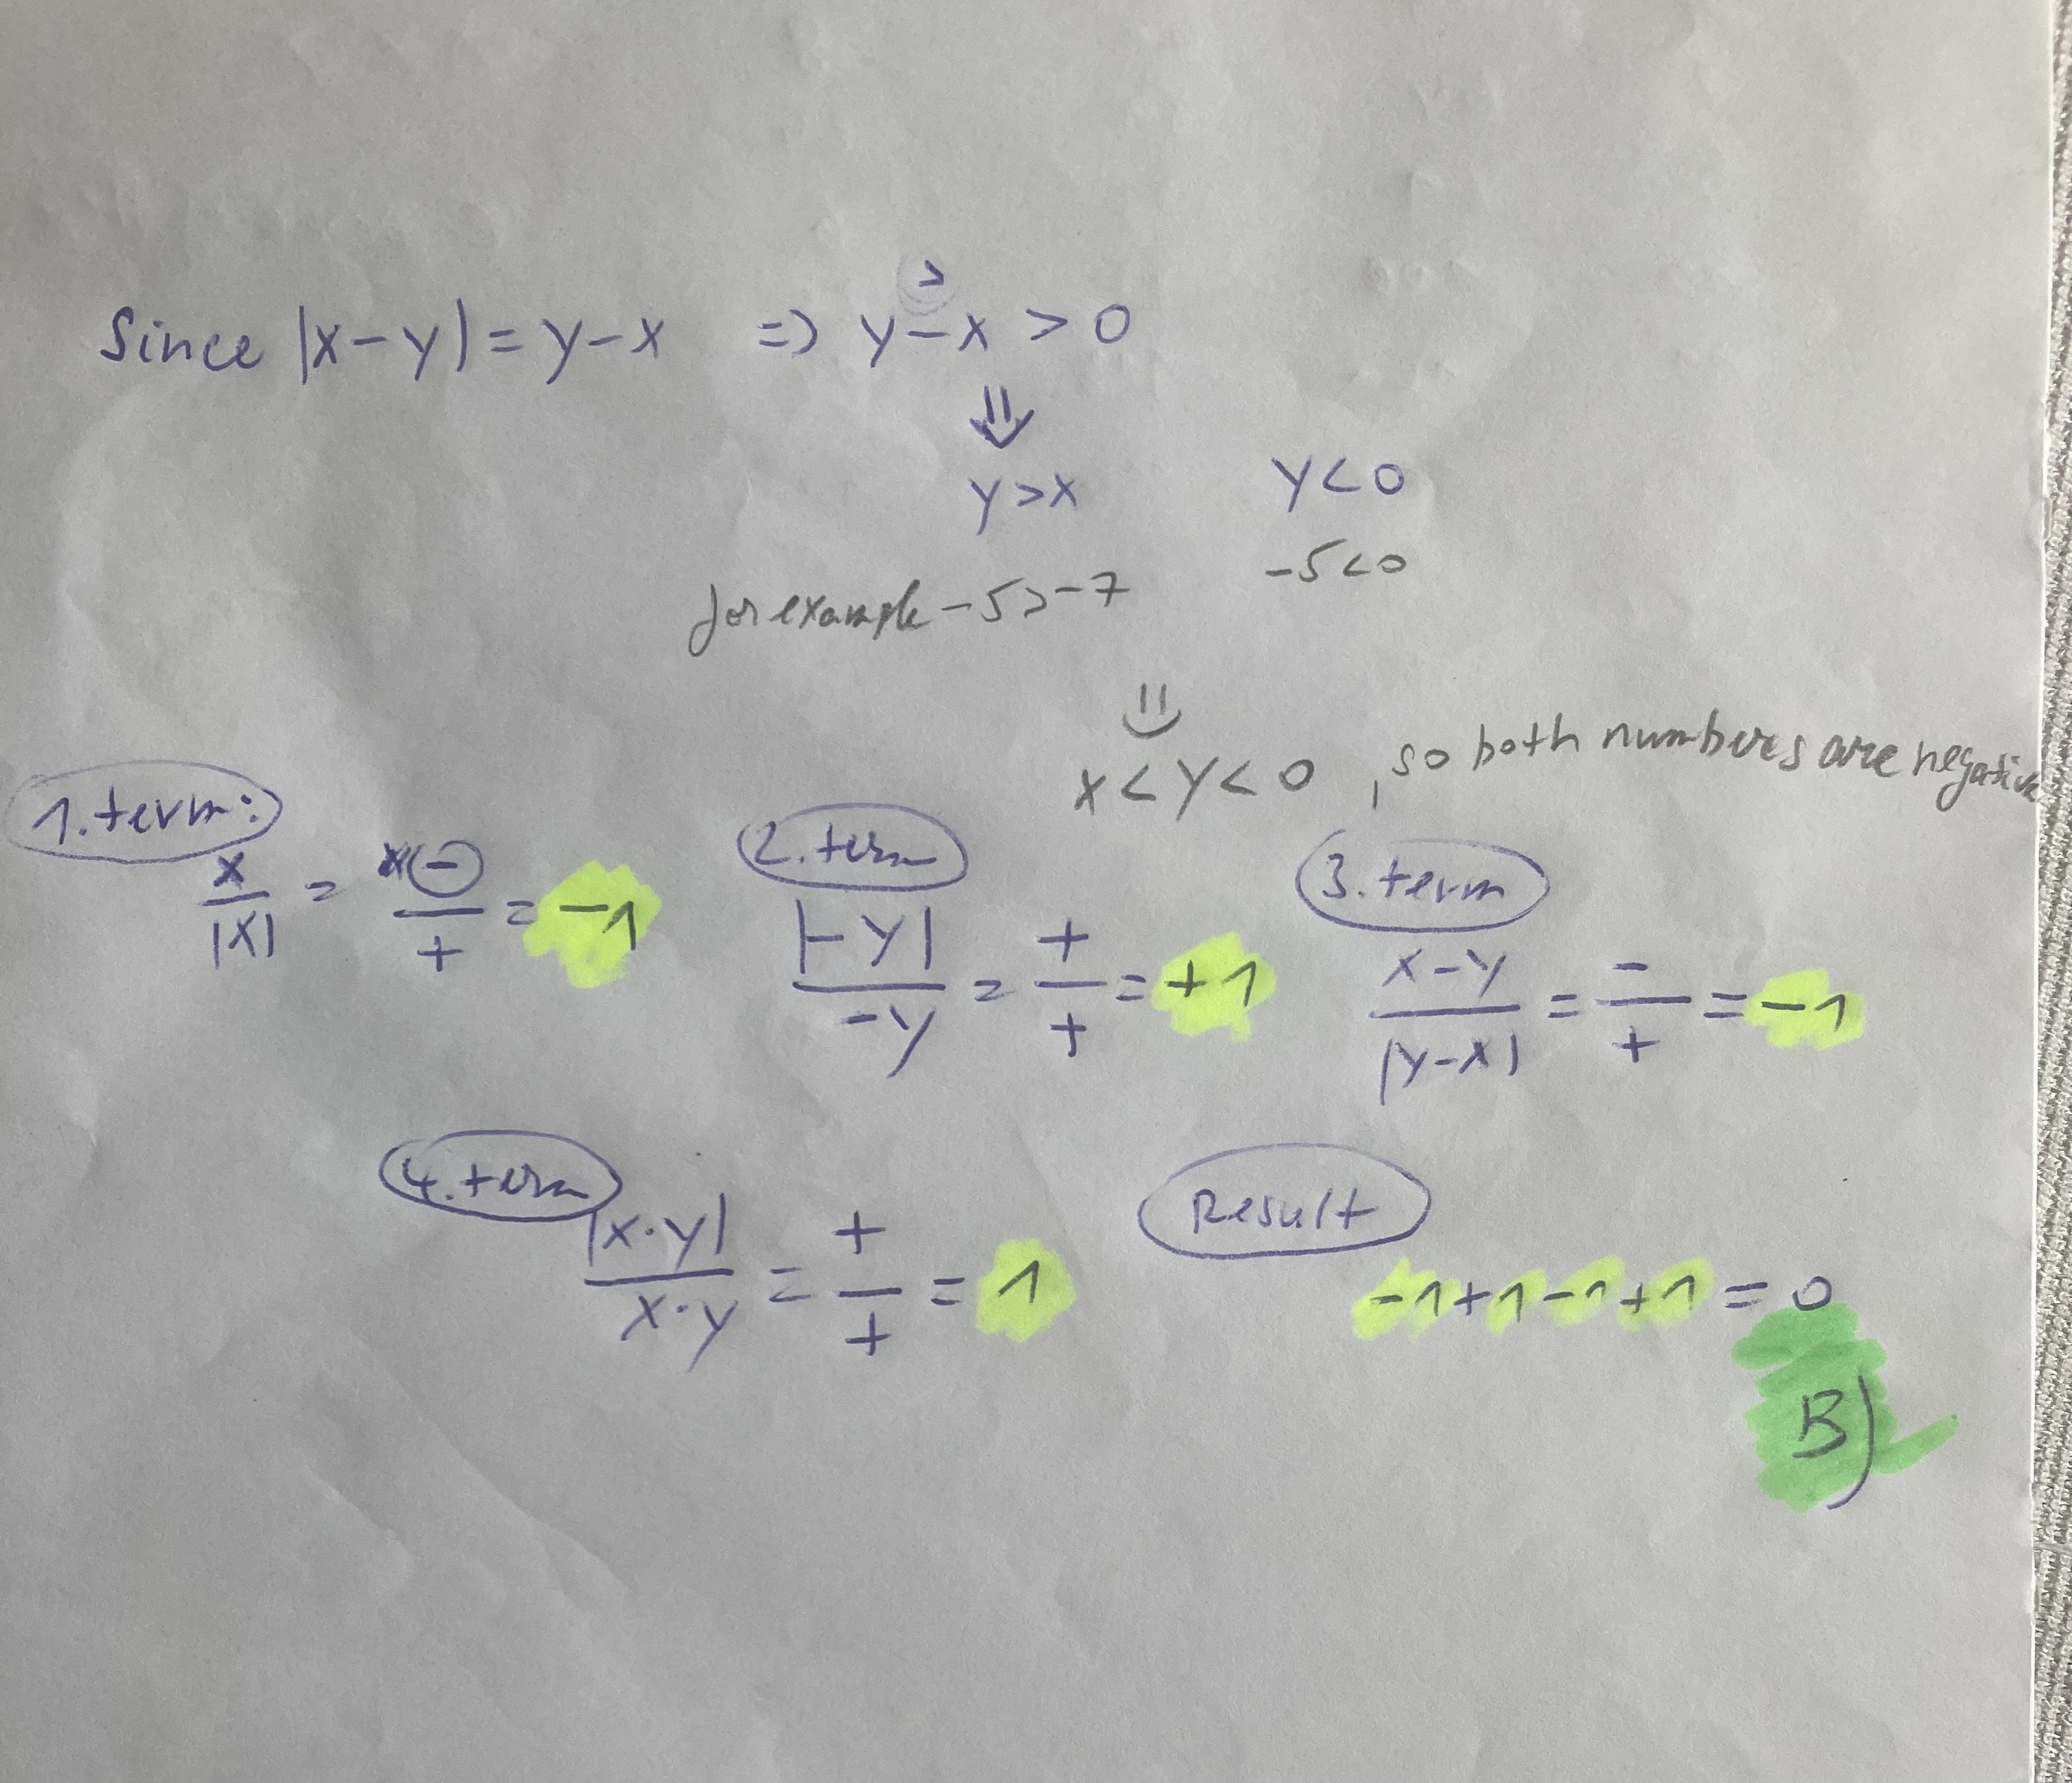 Since |x-y| = y-x => y-x > 0
>
⇓
y>x y<0
for example -5>-7 -5<0
⇓
x<y<0, so both numbers are negative
1. term:
x/|x| = (-)/+ = -1
2. term
|-y|/-y = +/+ = +1
3. term
x-y/|y-x| = -/+ = -1
4. term
|x·y|/x·y = +/+ = 1
Result
-1+1-1+1 = 0
B)